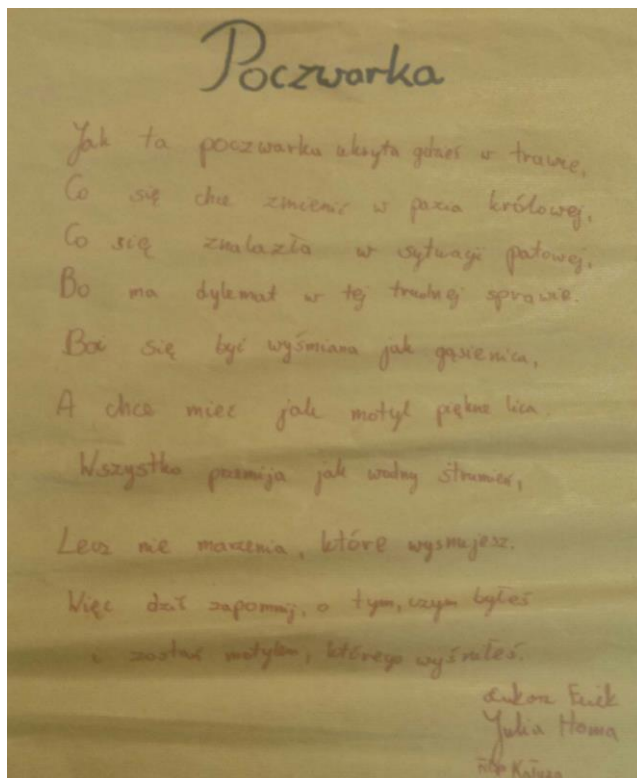 Poczwarka
Jak ta poczwarka ukryta gdzieś w trawie,
Co się chce zmienić w pazia królowej,
Co się znalazła w sytuacji patowej,
Bo ma dylemat w tej trudnej sprawie.
Boi się być wyśmiana jak gąsienica,
A chce mieć jak motyl piękne lica.
Wszystko przemija jak wodny strumień,
Lecz nie marzenia, które wysnujesz.
Więc dziś zapomnij, o tym, czym byłeś
i zostań motylem, którego wyśniłeś.
Julia Homa